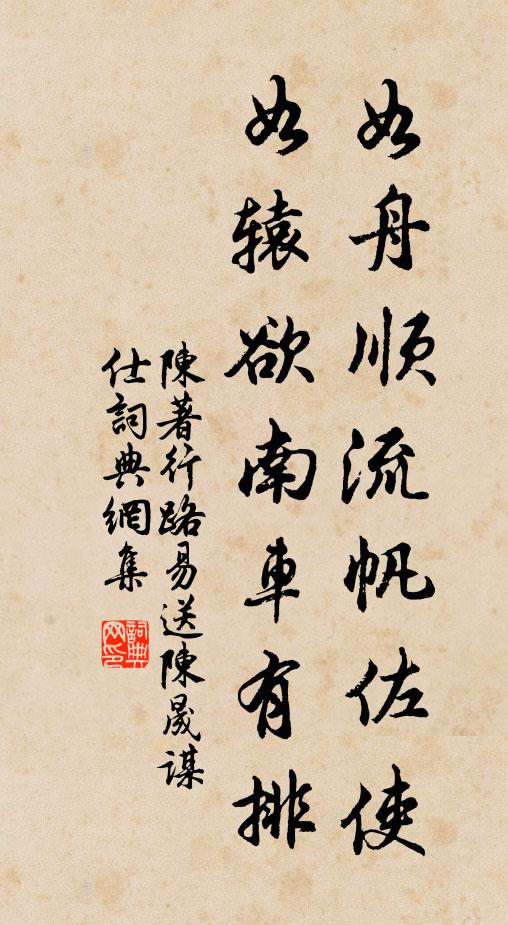 如舟順流帆佐使
如辕欲南車有排
陳著行路易送陳晟謀
仕詞典網集
詞典
网印